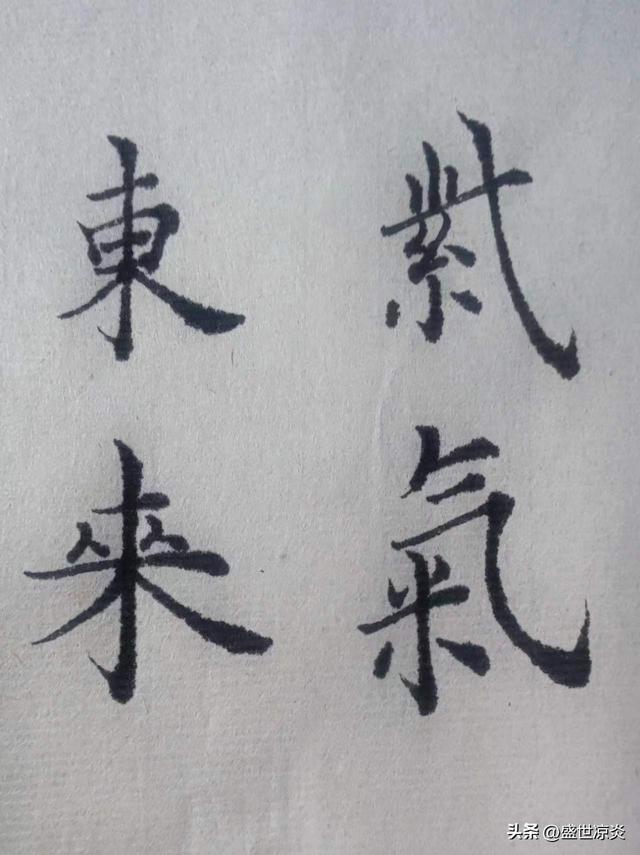 紫氣
東來
头条 @盛世凉炎